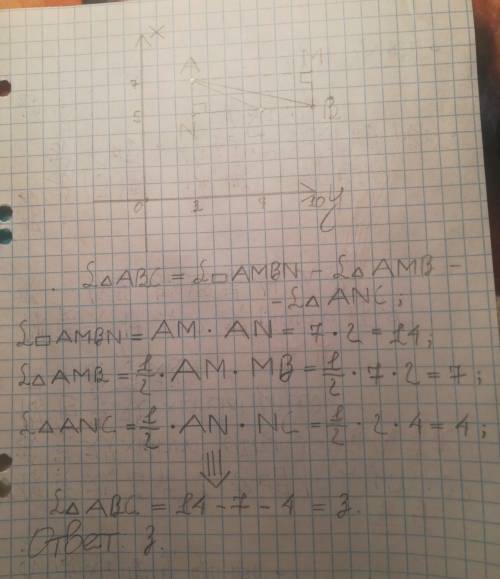 X
A
M
7
5
N
C
B
0
3
7
10
y
S△ABC = S□AMBN - S△AMB -
- S△ANC;
S□AMBN = AM · AN = 7 · 2 = 14;
S△AMB = 1/2 · AM · MB = 1/2 · 7 · 2 = 7;
S△ANC = 1/2 · AN · NC = 1/2 · 2 · 4 = 4;
S△ABC = 14 - 7 - 4 = 3.
Ответ 3.